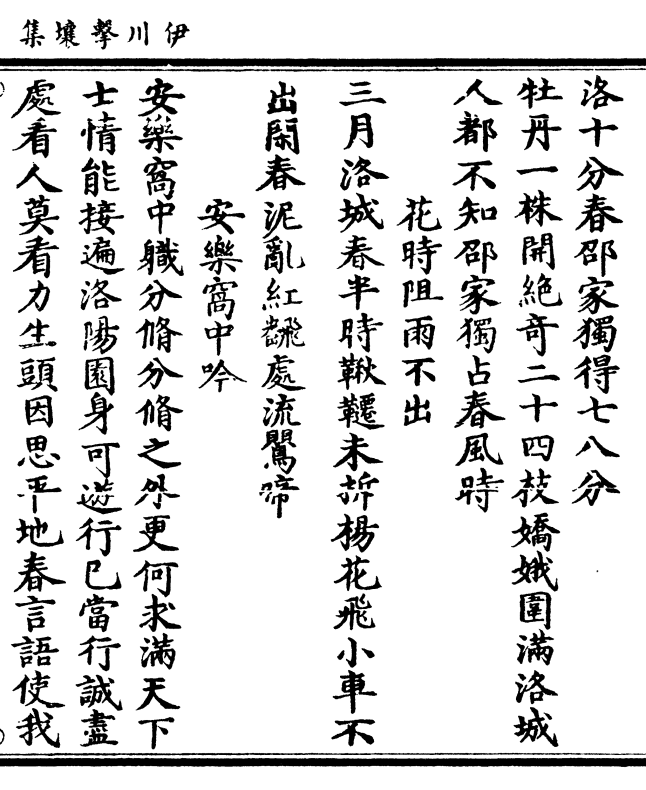 伊川擊壤集
洛十分春邵家獨得七八分
牡丹一株開絶奇二十四枝嬌娥圍滿洛城
人都不知邵家獨占春風時
花時阻雨不出
三月洛城春半時鞦韆未拆楊花飛小車不
出閑春泥亂紅飜處流鶯啼
安樂窩中吟
安樂窩中職分脩分脩之外更何求滿天下
士情能接遍洛陽園身可遊行已當行誠盡
處看人莫看力生頭因思平地春言語使我